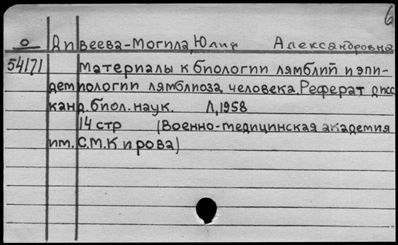 6
О Дивеева-Могила, Юлия Александровна
54171 Материалы к биологии лямблий и эпи-
демиологии лямблиоза человека. Реферат дисс
канд. биол. наук. Л, 1958
14 стр (Военно-медицинская академия
им. С.М. Кирова)